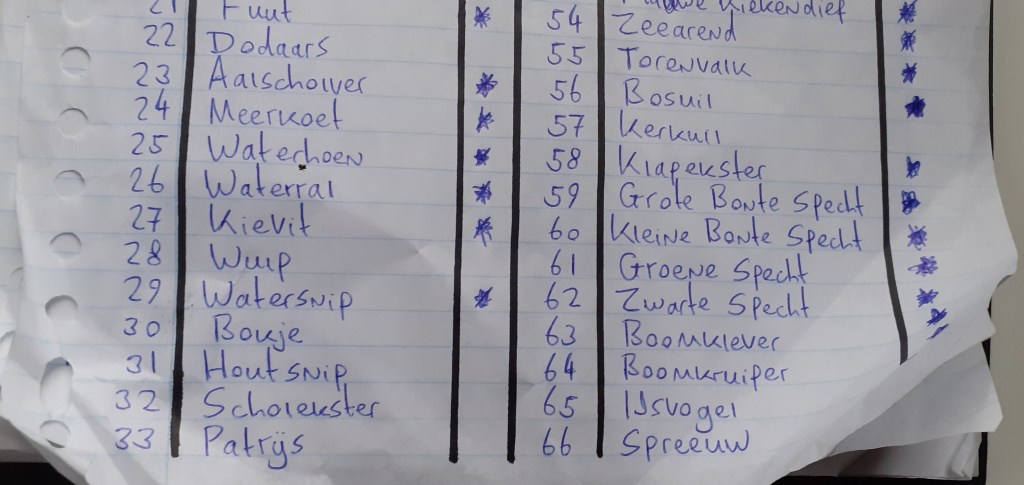 21 Fuut * 54 Zeearend *
22 Dodaars 55 Torenvalk *
23 Aalscholver * 56 Bosuil *
24 Meerkoet * 57 Kerkuil
25 Waterhoen * 58 Klapekster *
26 Waterral * 59 Grote Bonte Specht *
27 Kievit * 60 Kleine Bonte Specht *
28 Wulp 61 Groene Specht *
29 Watersnip * 62 Zwarte Specht *
30 Bokje 63 Boomklever *
31 Houtsnip 64 Boomkruiper
32 Scholekster 65 IJsvogel
33 Patrijs 66 Spreeuw